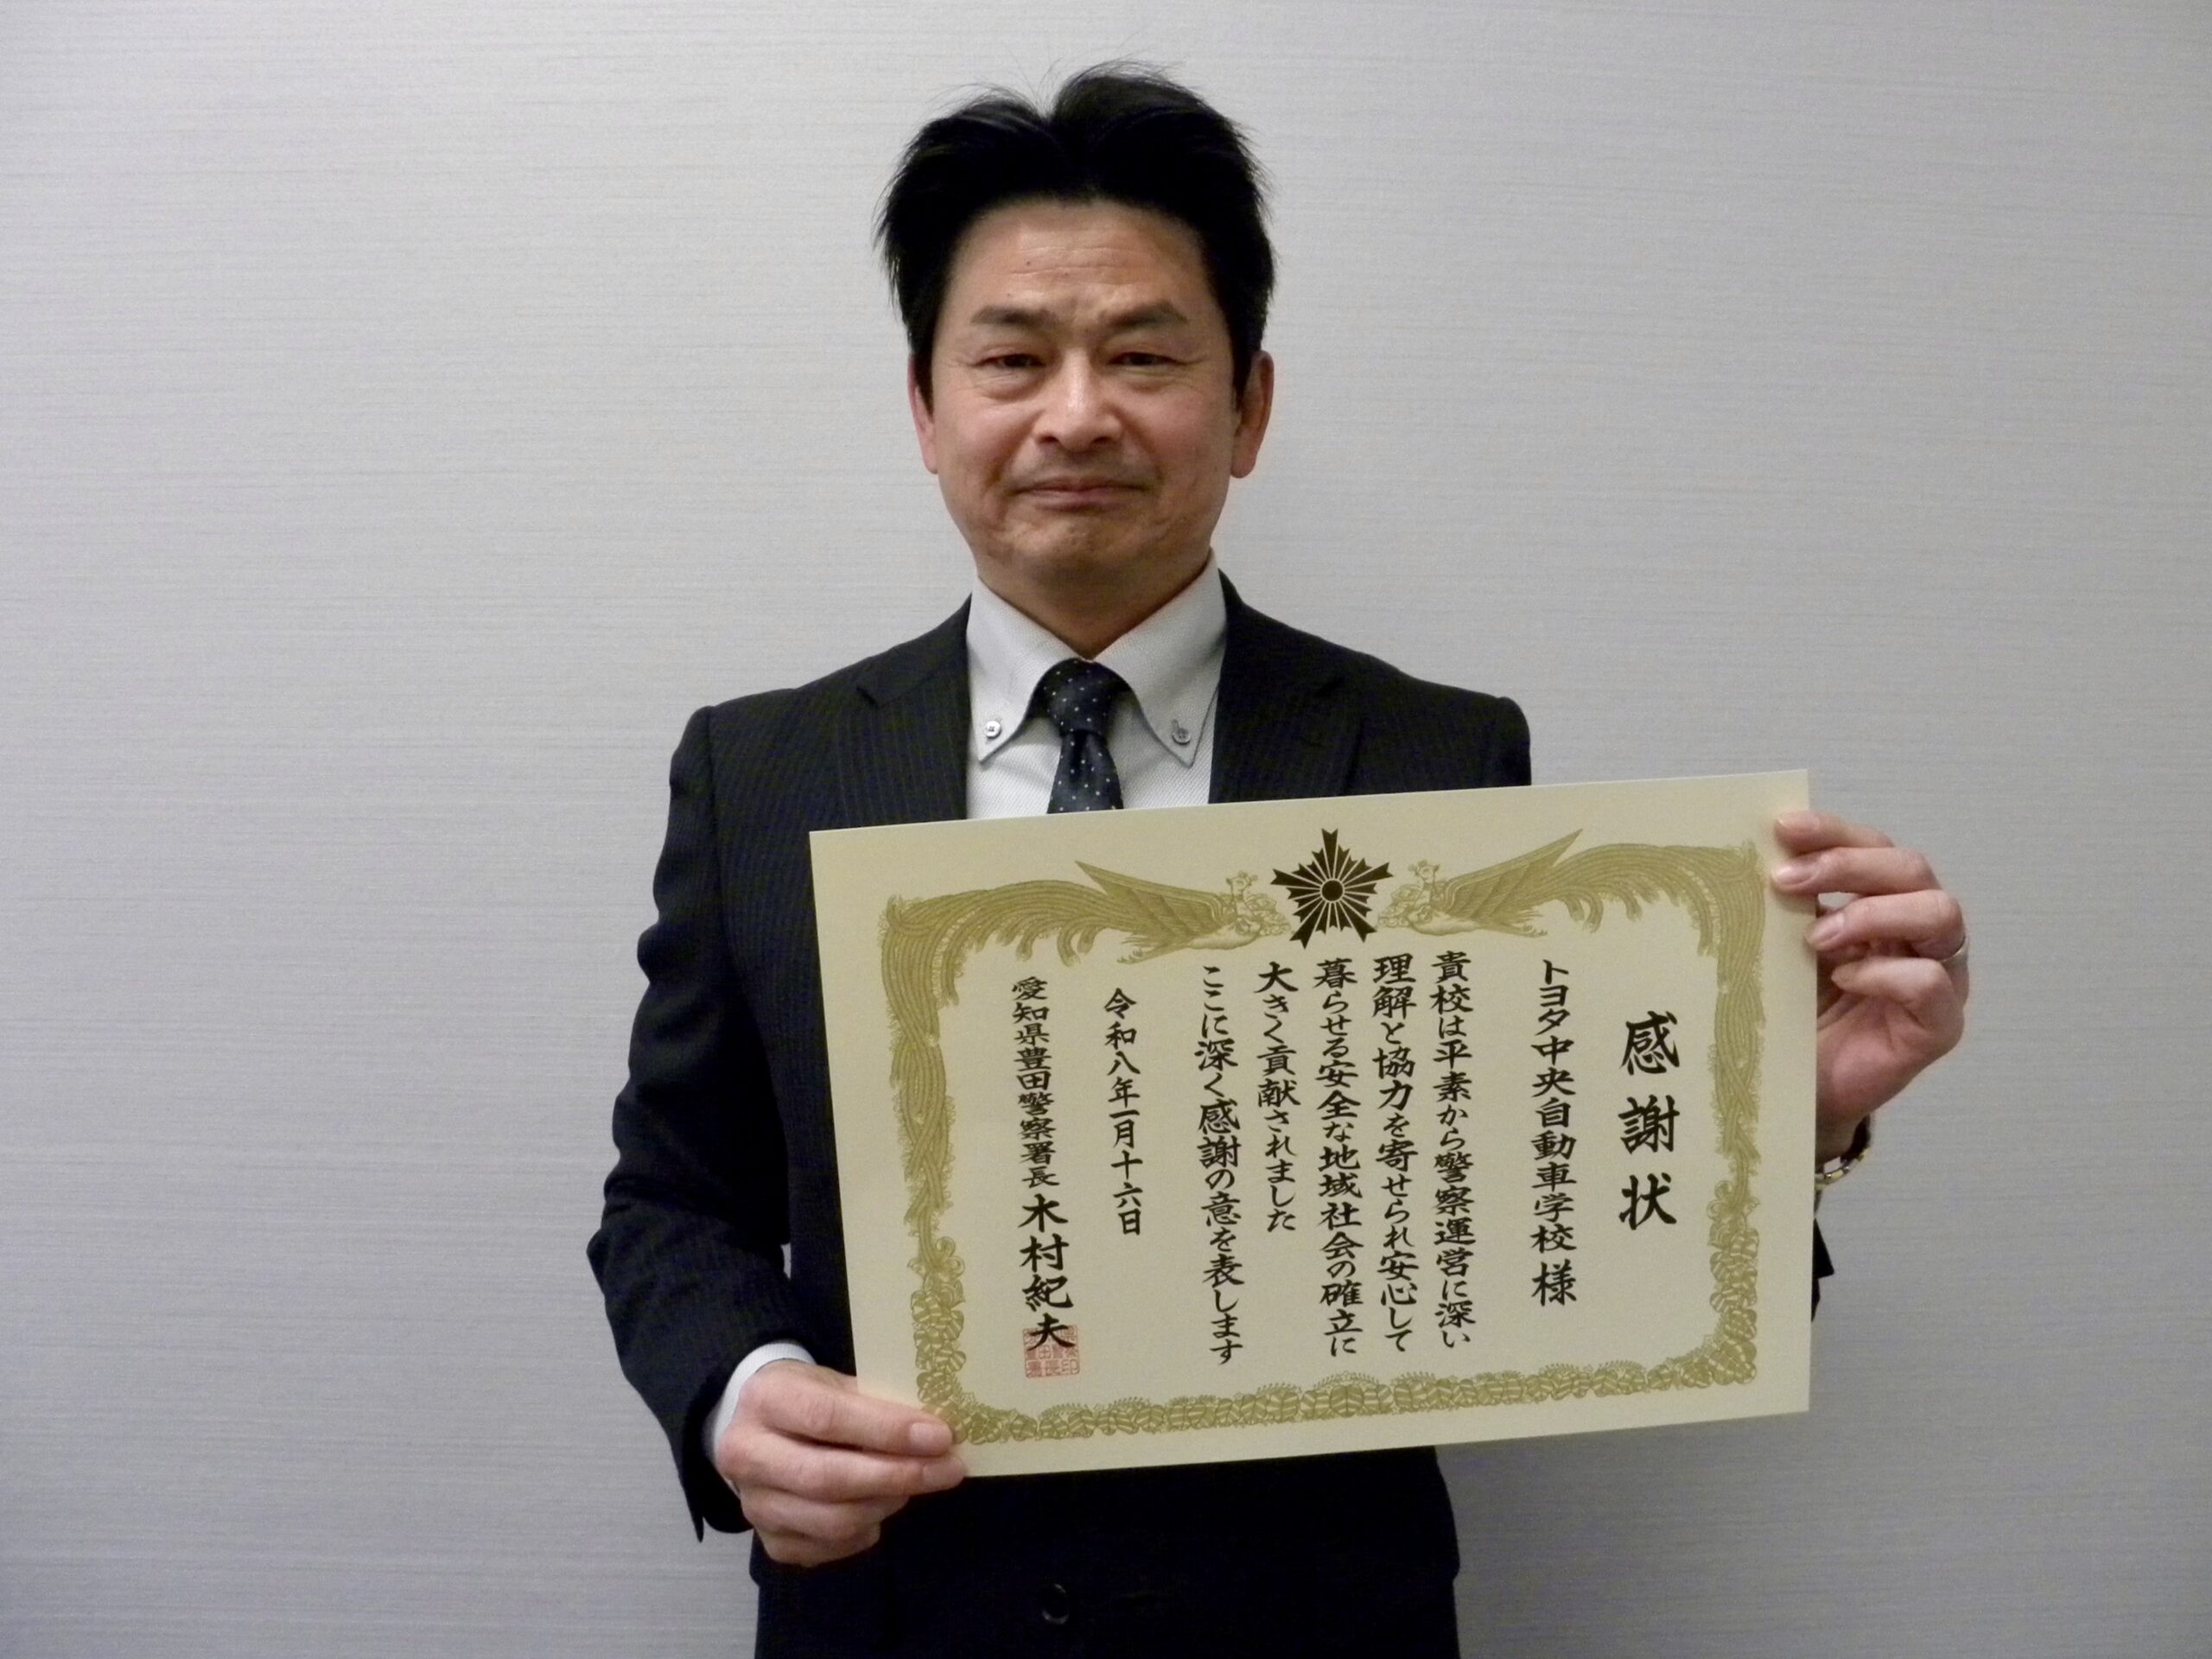 感謝状
トヨタ中央自動車学校様
貴校は平素から警察運営に深い
理解と協力を寄せられ安心して
暮らせる安全な地域社会の確立に
大きく貢献されました
ここに深く感謝の意を表します
令和八年一月十六日
愛知県豊田警察署長 木村紀夫